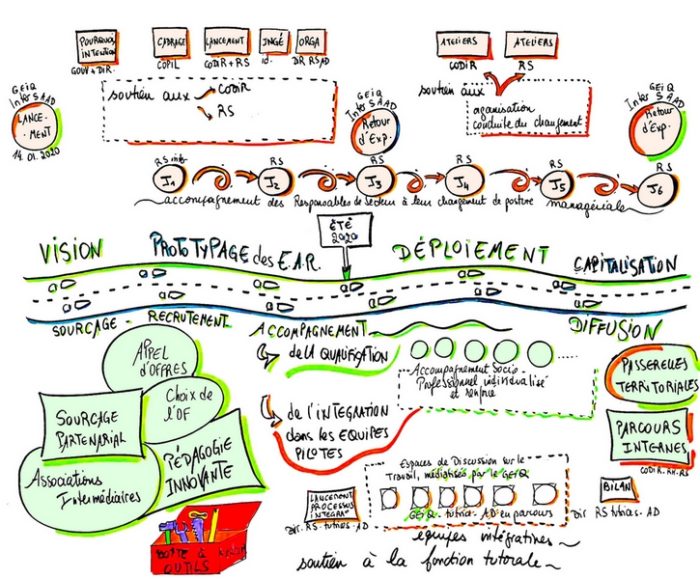 POURQUOI
INTENTION
GOUV + DIR.
CADRAGE
COPIL
LANCEMENT
CODIR + RS
INGÉ
id.
ORGA
DIR RS AD
ATELIERS
CODIR
ATELIERS
RS
soutien aux
CODIR
RS
soutien aux
organisation
conduite du changement
GEIQ
Inter SAAD
LANCE-
MENT
14.01.2020
GEIQ
Inter SAAD
Retour
d'Exp.
GEIQ
Inter SAAD
Retour
d'Exp.
RS inter
J1
RS
J2
RS
J3
RS
J4
RS
J5
RS
J6
accompagnement des Responsables de Secteur à leur changement de posture managériale
ÉTÉ
2020
VISION
PROTOTYPAGE des E.A.R.
DÉPLOIEMENT
CAPITALISATION
SOURCAGE - RECRUTEMENT
ACCOMPAGNEMENT
DIFFUSION
APPEL
D'OFFRES
Choix de
l'OF
SOURCAGE
PARTENARIAL
PÉDAGOGIE
INNOVANTE
Associations
Intermédiaires
BOITE à
OUTILS
de la QUALIFICATION
Accompagnement Socio-
Professionnel individualisé
et renforcé
de l'INTÉGRATION
dans les EQUIPES
PILOTES
PASSERELLES
TERRITORIALES
PARCOURS
INTERNES
CODIR. RH. RS
LANCEMENT
PROCESSUS
INTEGRAT°
Dir. RS. tutrices. AD
Espaces de Discussion sur le
Travail, médiatisés par le GEIQ
GEIQ - tutrices - AD en parcours
BILAN
Dir RS tutrices. AD
équipes intégratives
soutien à la fonction tutorale